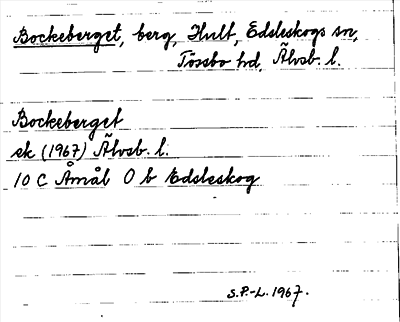 Bockeberget, berg, Hult, Edsleskogs sn,
Tössbo hd, Älvsb. l.
Bockeberget
ek (1967) Älvsb. l.
10 C Åmål O b Edsleskog
S.P.-L. 1967.